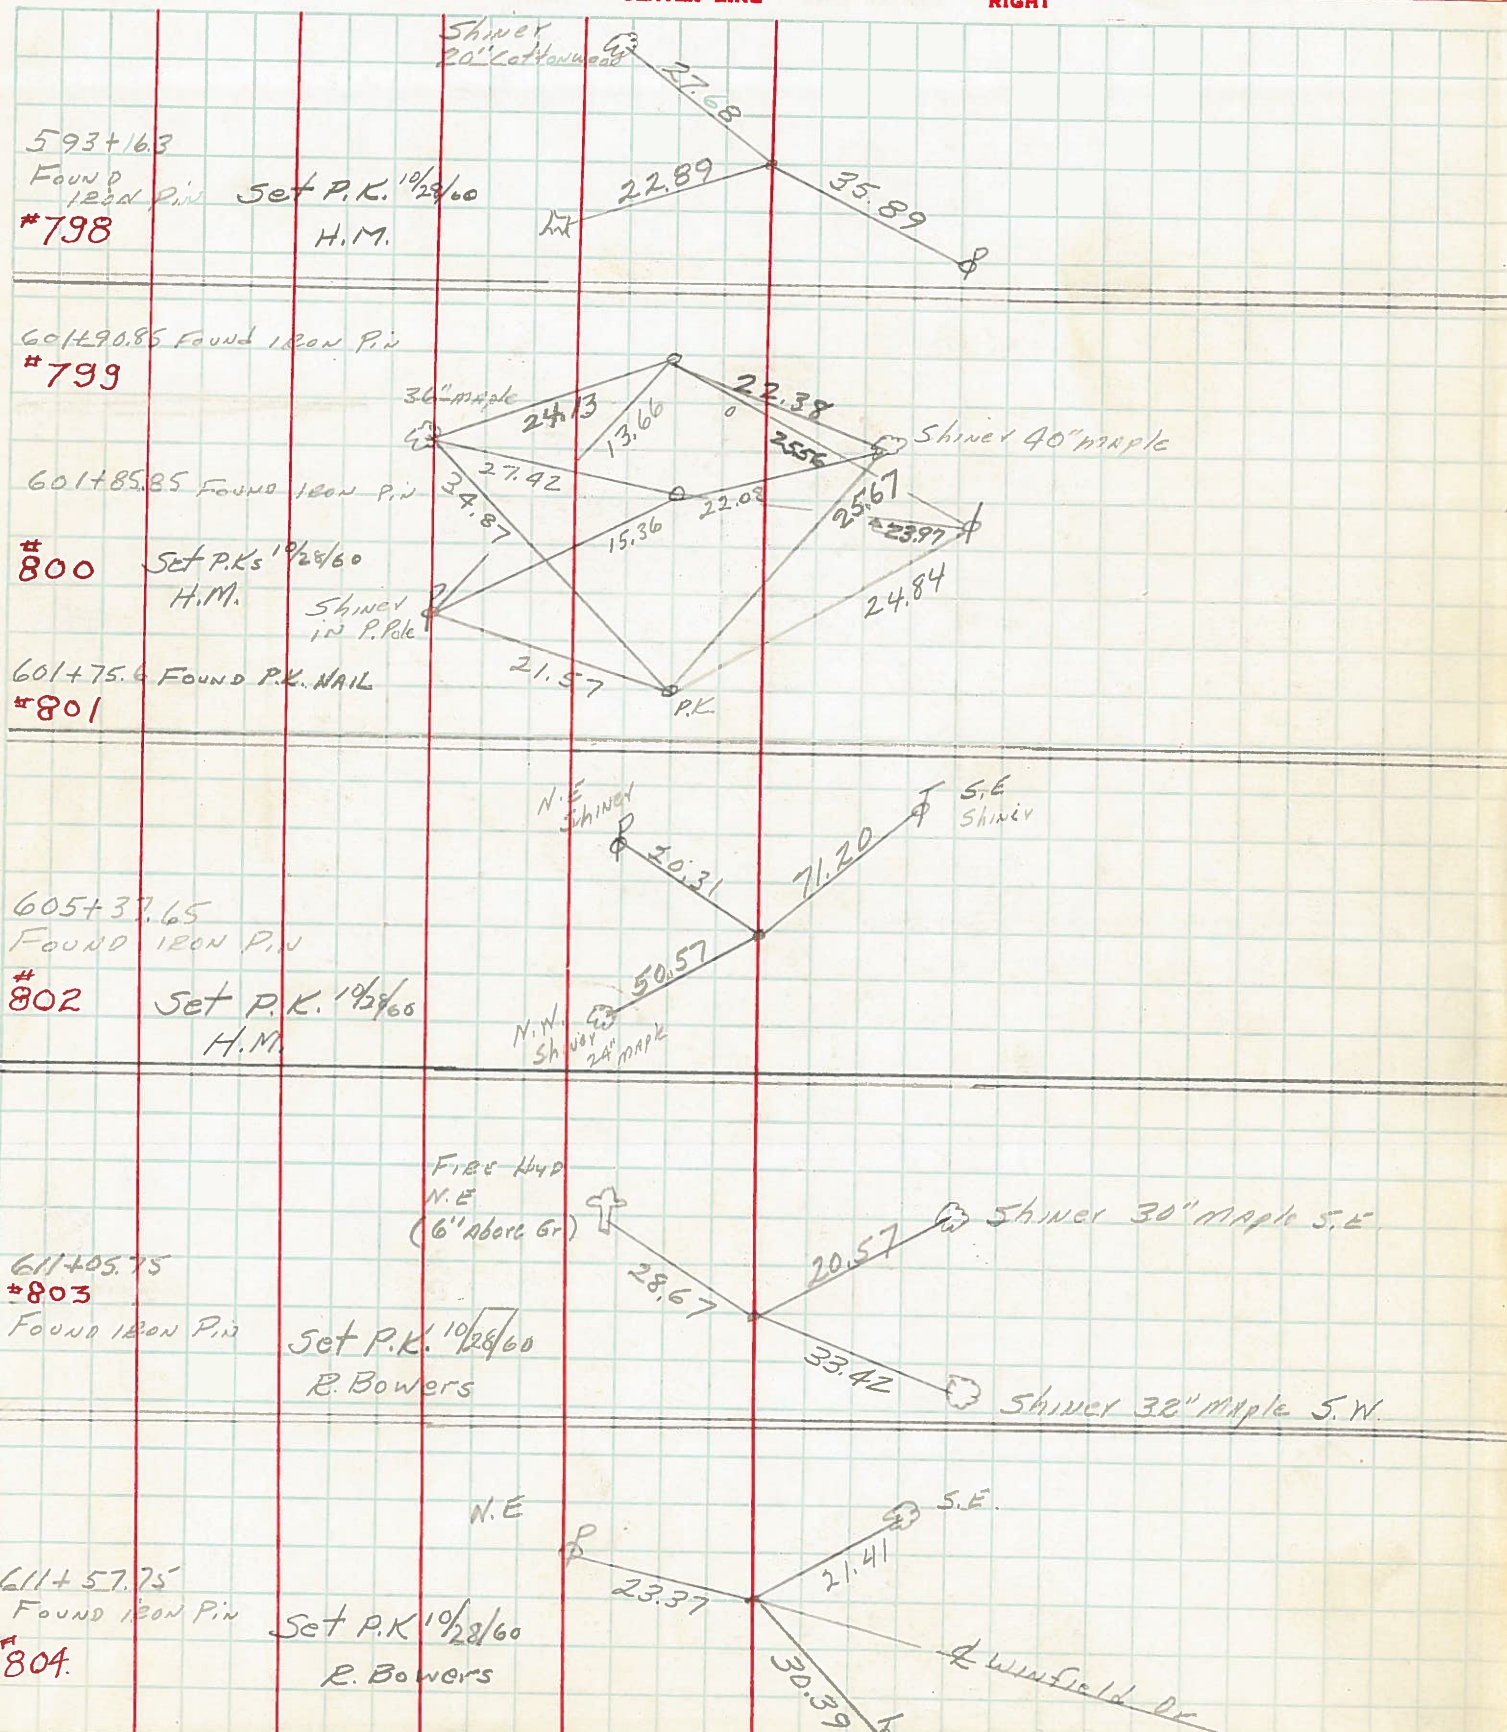 RIGHT
Shiner
20" Cottonwood
27.68
593+16.3
Found
Iron Pin
Set P.K. 10/28/60
22.89
35.89
#798
H.M.
601+90.85 Found Iron Pin
#799
36" maple
24.13
13.66
22.38
25.56
Shiner 40" maple
601+85.85 Found Iron Pin
27.42
34.87
22.08
25.67
15.36
23.97
#800
Set P.Ks 10/28/60
H.M.
Shiner
in P. Pole
24.84
601+75. Found P.K. Nail
21.57
#801
P.K.
N.E
Shiner
S.E
Shiner
20.31
71.20
605+37.65
Found Iron Pin
50.57
#802
Set P.K. 10/28/60
H.M.
N.W.
Shiner
24" maple
Fire Hyd
N.E
(6" Above Gr)
Shiner 30" Maple S.E.
20.57
28.67
611+05.75
#803
Found Iron Pin
Set P.K. 10/28/60
R. Bowers
33.42
Shiner 32" Maple S.W.
N.E
S.E.
21.41
23.37
611+57.75
Found Iron Pin
Set P.K 10/28/60
#804.
R. Bowers
30.39
℄ Winfield Dr